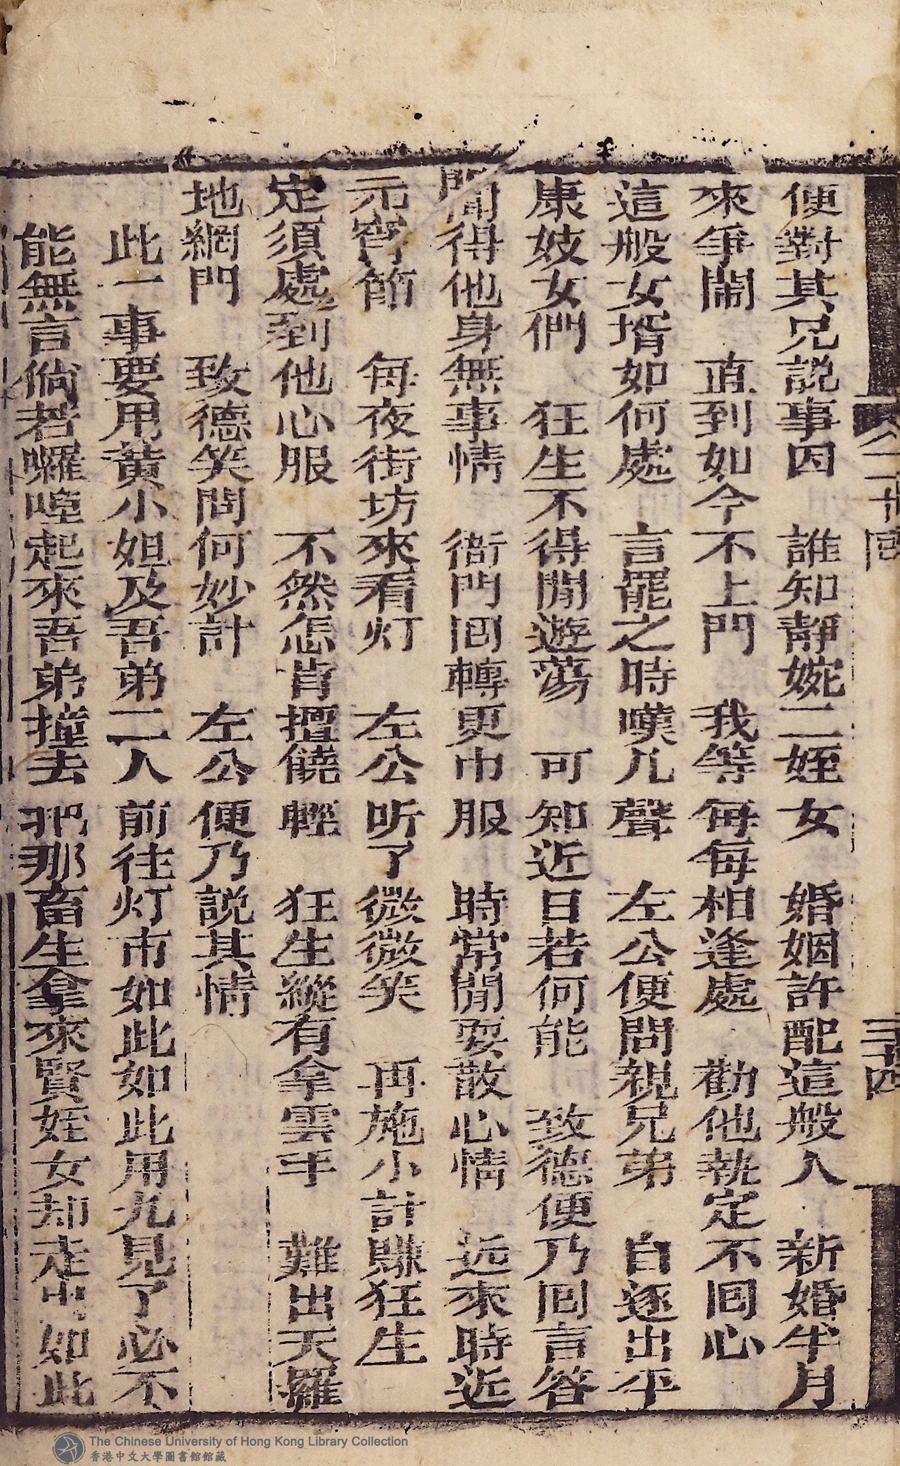 便對其兄説事因　誰知靜婉二姪女　婚姻許配這般人　新婚半月
來爭鬧　直到如今不上門　我等每每相逢處　勸他執定不囘心
這般女壻如何處　言罷之時嘆几聲　左公便問親兄弟　自逐出平
康妓女們　狂生不得閒遊蕩　可知近日若何能　致德便乃囘言答
聞得他身無事情　衙門囘轉更巾服　時常閒耍散心情　近來時近
元宵節　每夜街坊來看灯　左公听了微微笑　再施小計賺狂生
定須處到他心服　不然怎肯擅饒輕　狂生縱有拿雲手　難出天羅
地網門　致德笑問何妙計　左公便乃說其情
此一事要用黄小妲及吾弟二人前往灯市如此如此用九見了必不
能無言倘若囉唣起來吾弟撞去把那畜生拿來賢姪女却走出如此
二十囘
三十四
The Chinese University of Hong Kong Library Collection
香港中文大學圖書館館藏